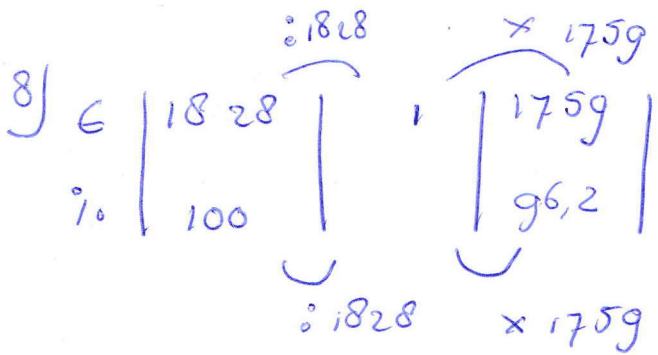 :1828 × 1759
8) € | 1828 | 1 | 1759 |
% | 100 | | 96,2 |
:1828 × 1759